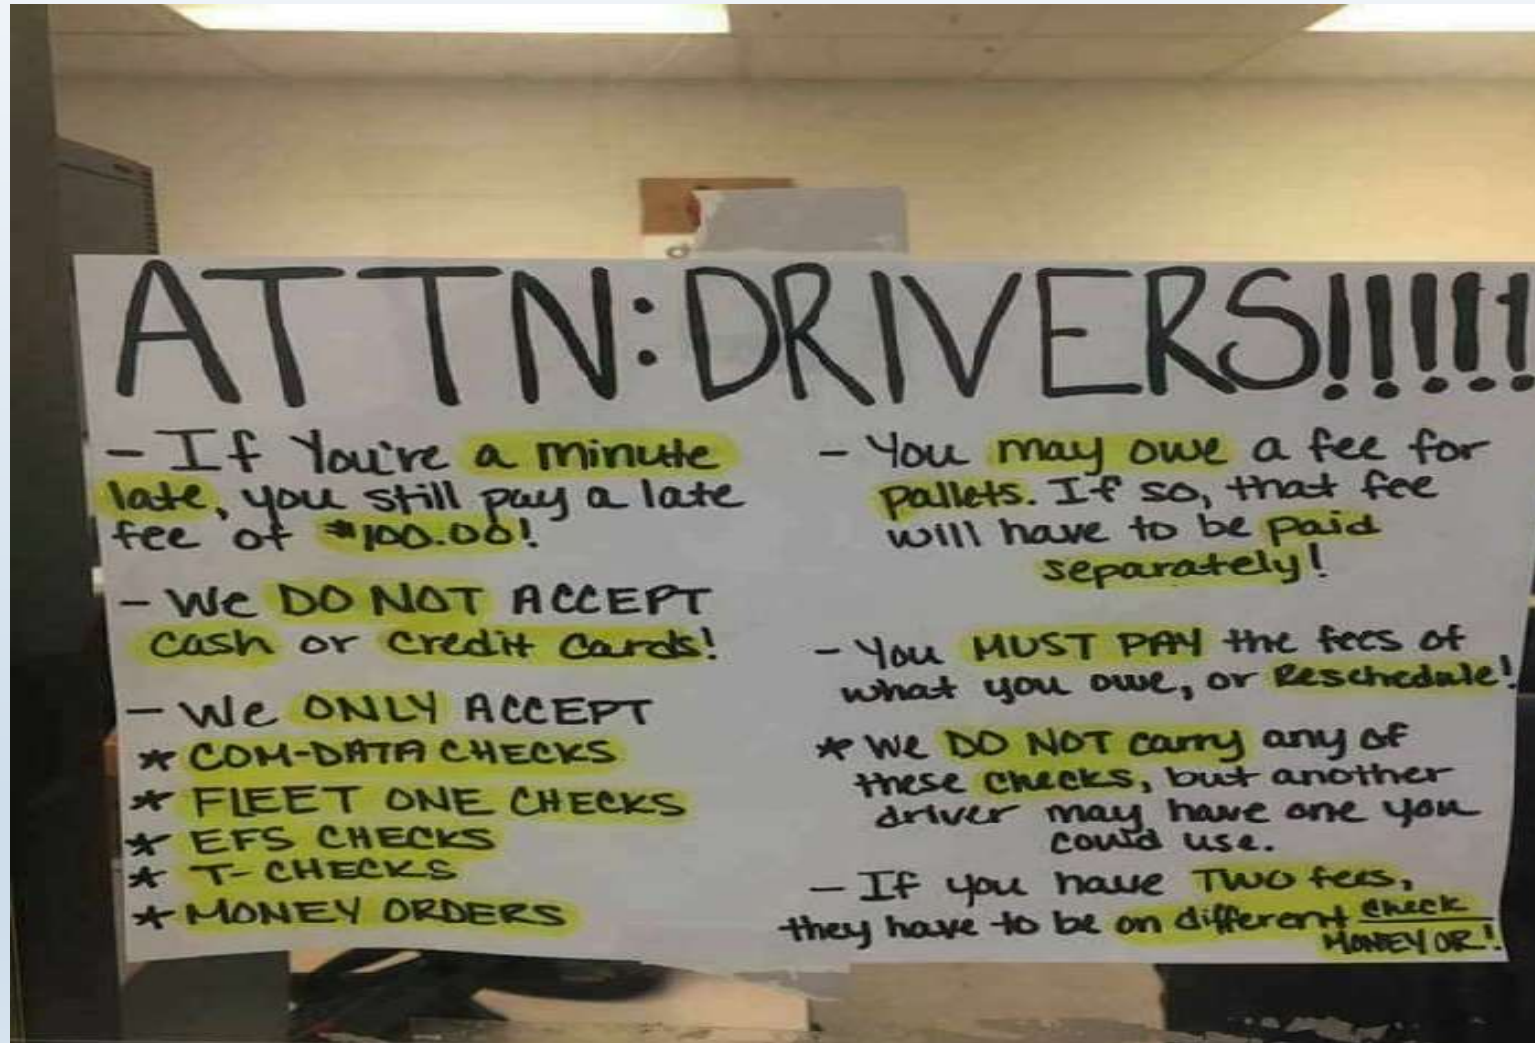 ATTN: DRIVERS!!!!!
- If You're a minute
late, you still pay a late
fee of $100.00!
- We DO NOT ACCEPT
Cash or Credit Cards!
- We ONLY ACCEPT
* COM-DATA CHECKS
* FLEET ONE CHECKS
* EFS CHECKS
* T-CHECKS
* MONEY ORDERS
- You may owe a fee for
pallets. If so, that fee
will have to be paid
separately!
- You MUST PAY the fees of
what you owe, or Reschedule!
* We DO NOT carry any of
these checks, but another
driver may have one you
could use.
- If you have TWO fees,
they have to be on different check
MONEY OR!